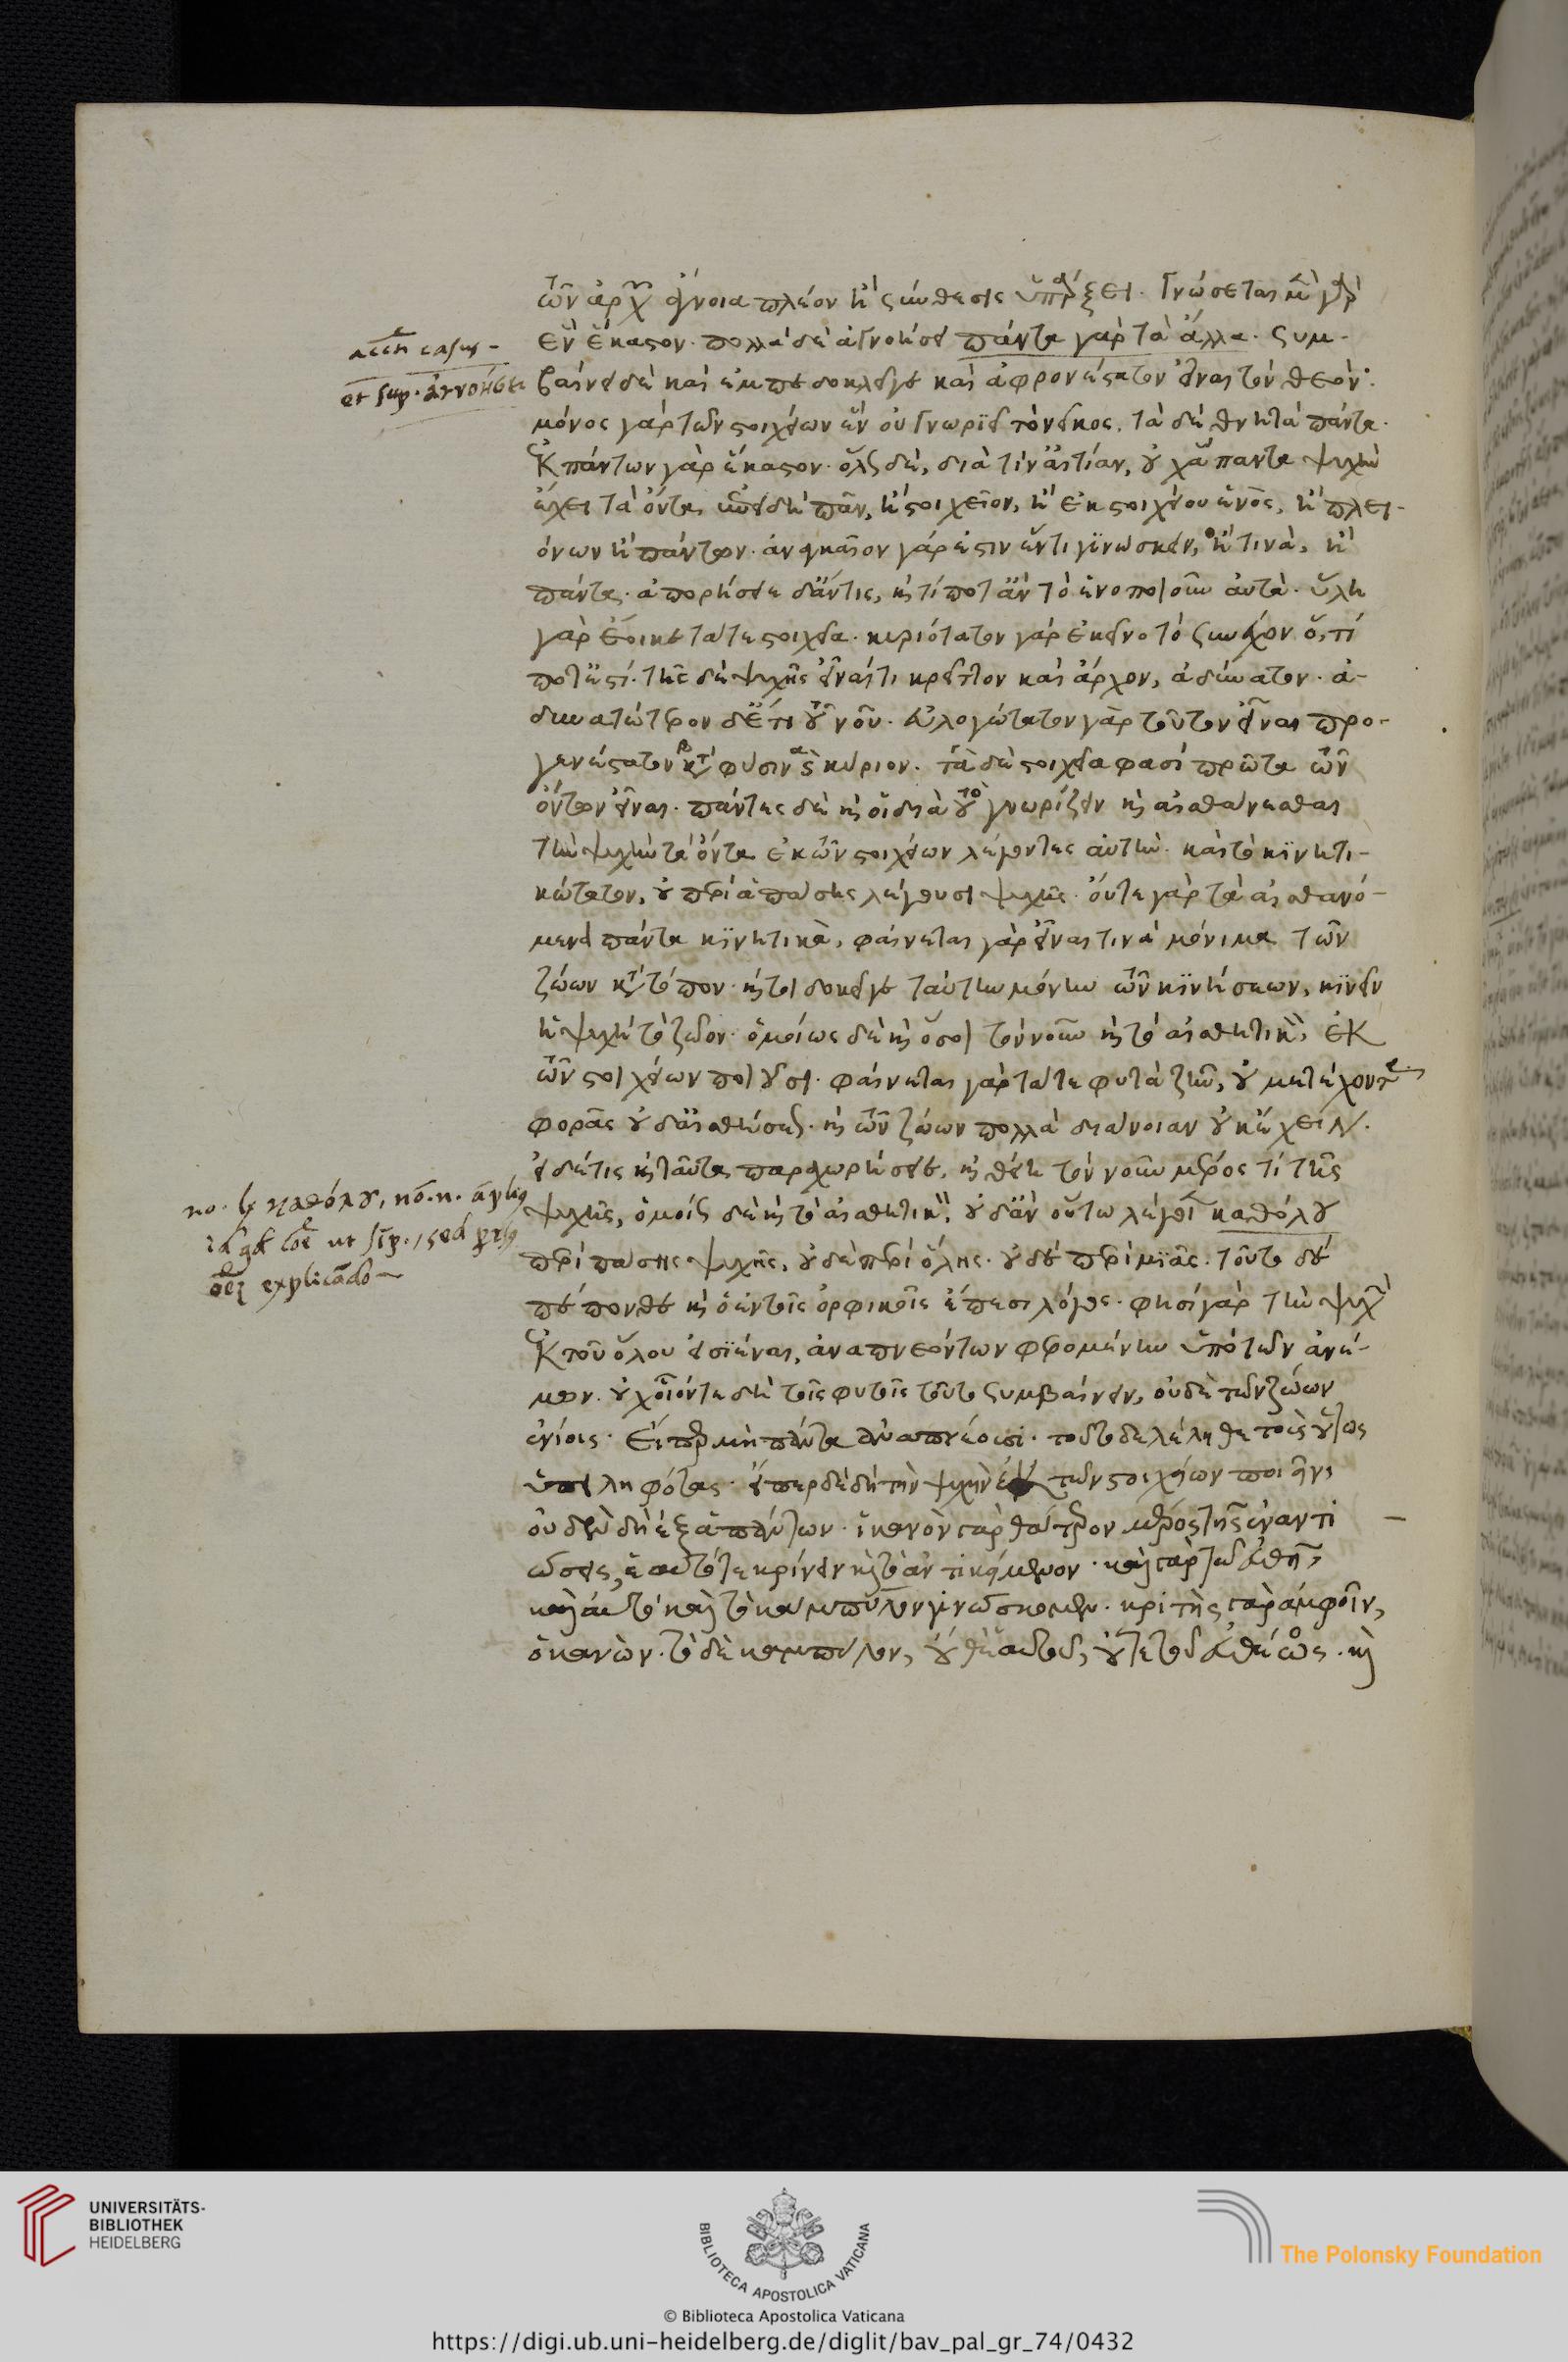 τῶν ἀρχῶν ἄγνοια πλέον ἢ σύνθεσις ὑπάρξει. Γνώσεται μὲν γὰρ
ἓν ἕκαστον. πολλὰ δὲ ἀγνοήσει πάντα γὰρ τὰ ἄλλα. συμ-
βαίνει δὲ καὶ ἐμπεδοκλεῖ γε καὶ ἀφρονέστατον εἶναι τὸν θεόν.
μόνος γὰρ τῶν στοιχείων ἓν οὐ γνωριεῖ τὸ νεῖκος. τὰ δὲ θνητὰ πάντα.
ἐκ πάντων γὰρ ἕκαστον. ὅλως δὲ, διὰ τίν' αἰτίαν, οὐχ ἅπαντα ψυχὴν
ἔχει τὰ ὄντα, ἐπειδὴ πᾶν, ἢ στοιχεῖον, ἢ ἐκ στοιχείου ἑνὸς, ἢ πλει-
όνων ἢ πάντων. ἀναγκαῖον γάρ ἐστιν ἕν τι γινώσκειν, ἢ τινὰ, ἢ
πάντα. ἀπορήσειε δ' ἄν τις, καὶ τί ποτ' ἂν τὸ ἑνοποιοῦν αὐτὰ. ὕλη
γὰρ ἔοικε τά τε στοιχεῖα. κυριότατον γὰρ ἐκεῖνο τὸ συνέχον ὅ, τί
ποτ' ἐστί. τῆς δὲ ψυχῆς εἶναί τι κρεῖττον καὶ ἄρχον, ἀδύνατον. ἀ-
δυνατώτερον δ' ἔτι τοῦ νοῦ. εὐλογώτατον γὰρ τοῦτον εἶναι προ-
γενέστατον κατὰ φύσιν καὶ κύριον. τὰ δὲ στοιχεῖα φασὶ πρῶτα τῶν
ὄντων εἶναι. πάντες δὲ καὶ οἱ διὰ τὸ γνωρίζειν καὶ αἰσθάνεσθαι
τὴν ψυχὴν τὰ ὄντα ἐκ τῶν στοιχείων λέγοντες αὐτὴν. καὶ τὸ κινητι-
κώτατον, οὐ περὶ ἁπάσης λέγουσι ψυχῆς. οὔτε γὰρ τὰ αἰσθανό-
μενα πάντα κινητικὰ, φαίνεται γὰρ εἶναι τινὰ μόνιμα τῶν
ζώων κατὰ τόπον. καίτοι δοκεῖ γε ταύτην μόνην τῶν κινήσεων, κινεῖν
ἡ ψυχὴ τὸ ζῷον. ὁμοίως δὲ καὶ ὅσοι τὸν νοῦν καὶ τὸ αἰσθητικὸν, ἐκ
τῶν στοιχείων ποιοῦσι. φαίνεται γὰρ τά τε φυτὰ ζῆν, οὐ μετέχοντα
φορᾶς οὐδ' αἰσθήσεως. καὶ τῶν ζώων πολλὰ διάνοιαν οὐκ ἔχειν.
εἰ δέ τις καὶ ταῦτα παραχωρήσειε, καὶ θείη τὸν νοῦν μέρος τί τῆς
ψυχῆς, ὁμοίως δὲ καὶ τὸ αἰσθητικὸν, οὐδ' ἂν οὕτω λέγοι καθόλου
περὶ πάσης ψυχῆς, οὐδὲ περὶ ὅλης. οὐδὲ περὶ μιᾶς. τοῦτο δὲ
πέπονθε καὶ ὁ ἐν τοῖς ὀρφικοῖς ἔπεσι λόγος. φησὶ γὰρ τὴν ψυχὴν
ἐκ τοῦ ὅλου εἰσιέναι, ἀναπνεόντων φερομένην ὑπὸ τῶν ἀνέ-
μων. οὐχ οἷόν τε δὴ τοῖς φυτοῖς τοῦτο συμβαίνειν, οὐδὲ τῶν ζώων
ἐνίοις. Εἴπερ μὴ πάντα ἀναπνέουσι. τοῦτο δὲ λέληθε τοὺς οὕτως
ὑπειληφότας. εἴπερ δὲ δὴ τὴν ψυχὴν ἐκ τῶν στοιχείων ποιεῖν,
οὐδὲν δὴ ἐξ ἁπάντων. ἱκανὸν γὰρ θάτερον μέρος τῆς ἐναντι
ώσεως, ἑαυτό τε κρίνειν καὶ τὸ ἀντικείμενον. καὶ γὰρ τῷ εὐθεῖ,
καὶ αὐτὸ καὶ τὸ καμπύλον γινώσκομεν. κριτὴς γὰρ ἀμφοῖν,
ὁ κανὼν. τὸ δὲ καμπύλον, οὔθ' ἑαυτοῦ, οὔτε τοῦ εὐθέως. καὶ
casus
et sup. ἀγνοήσει
καθόλου
explicando
UNIVERSITÄTS-
BIBLIOTHEK
HEIDELBERG
BIBLIOTECA APOSTOLICA VATICANA
The Polonsky Foundation
© Biblioteca Apostolica Vaticana
https://digi.ub.uni-heidelberg.de/diglit/bav_pal_gr_74/0432